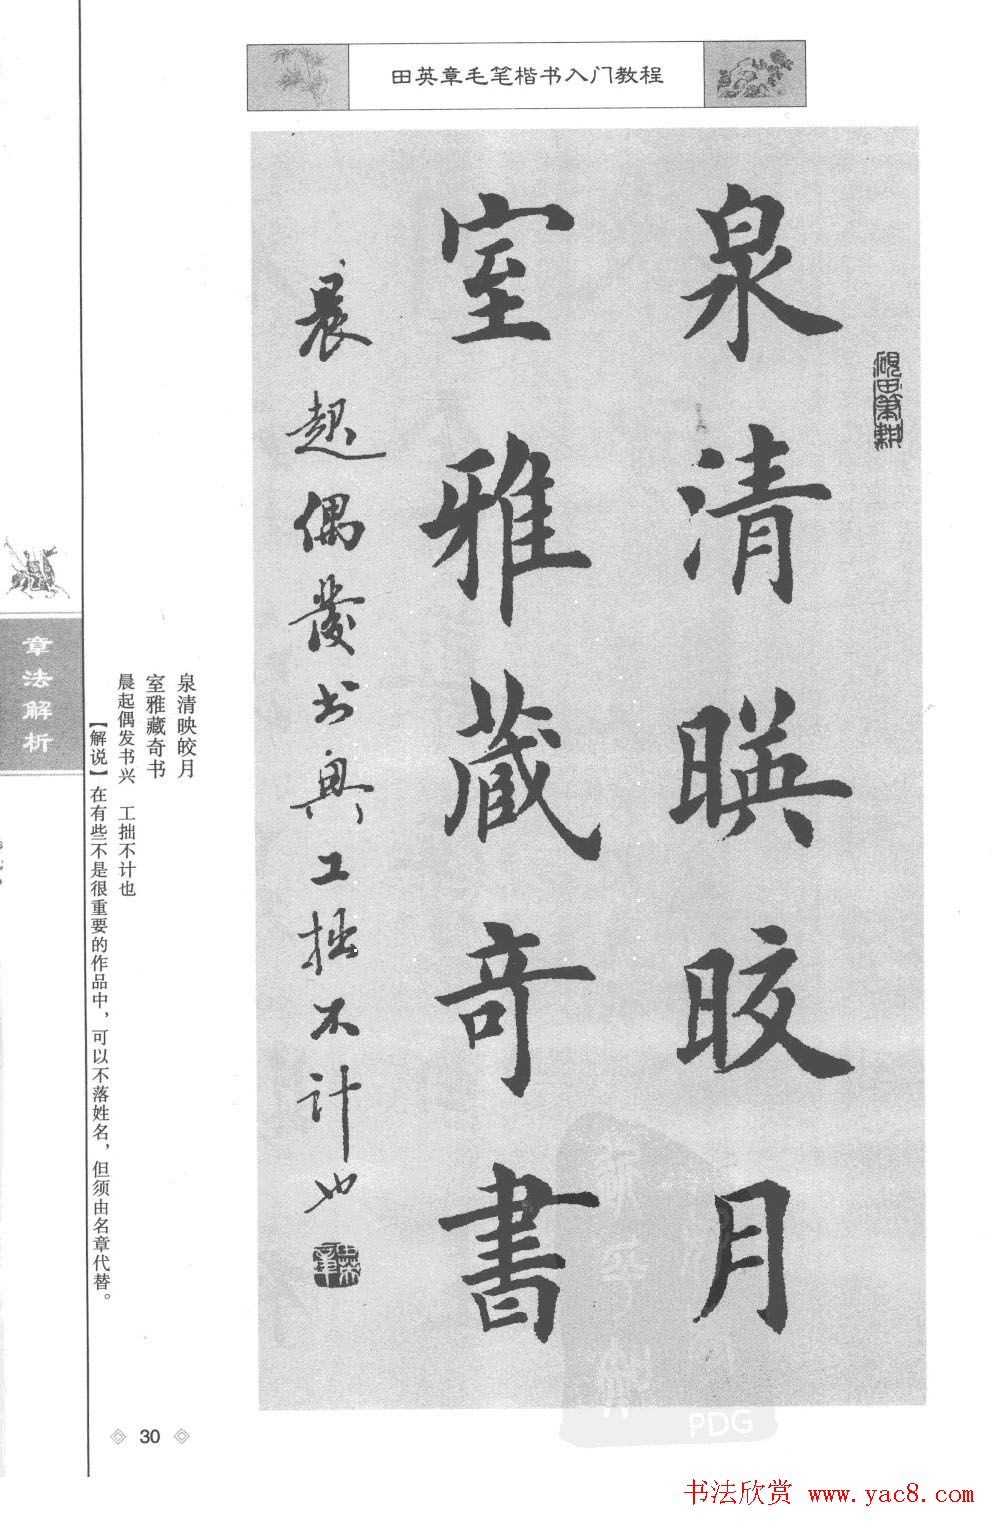 田英章毛笔楷书入门教程
泉清暎晈月
室雅蔵竒書
晨起偶發书興工拙不计也
泉清映皎月
室雅藏奇书
晨起偶发书兴 工拙不计也
【解说】在有些不是很重要的作品中，可以不落姓名，但须由名章代替。
章法解析
30
PDG
书法欣赏 www.yac8.com